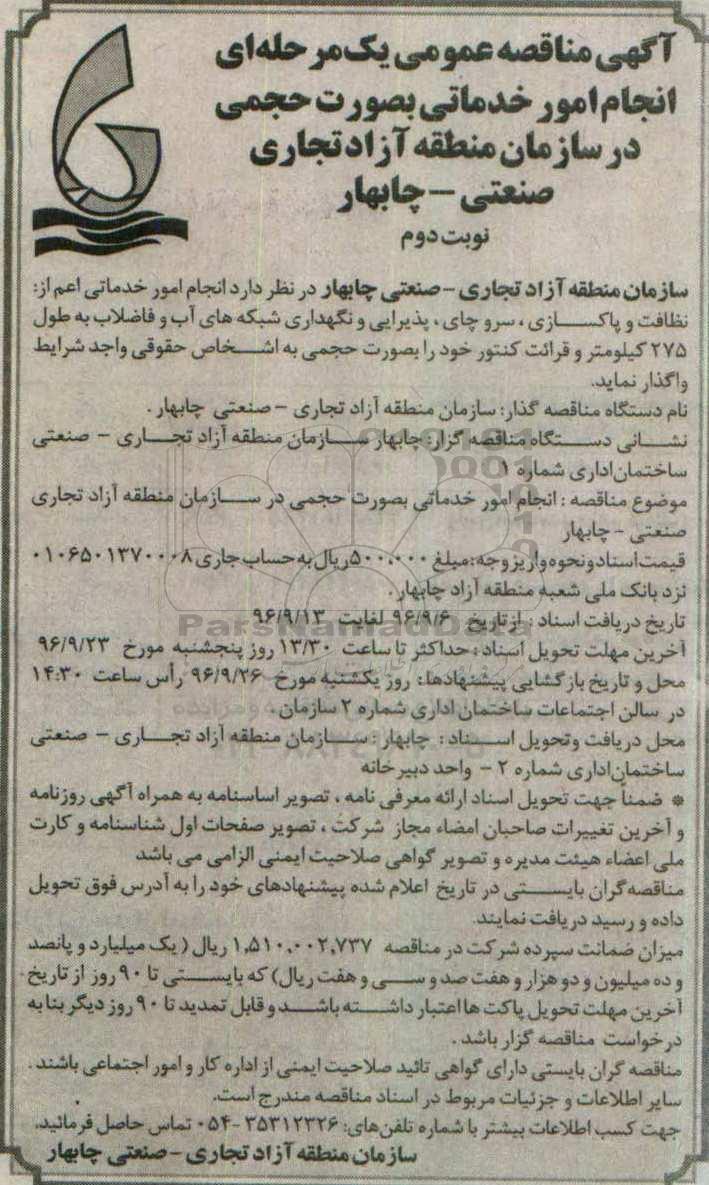 آگهی مناقصه عمومی یک‌مرحله‌ای
انجام امور خدماتی بصورت حجمی
در سازمان منطقه آزاد تجاری
صنعتی – چابهار
نوبت دوم
سازمان منطقه آزاد تجاری – صنعتی چابهار در نظر دارد انجام امور خدماتی اعم از:
نظافت و پاکسازی ، سرو چای ، پذیرایی و نگهداری شبکه های آب و فاضلاب به طول
۲۷۵ کیلومتر و قرائت کنتور خود را بصورت حجمی به اشخاص حقوقی واجد شرایط
واگذار نماید.
نام دستگاه مناقصه گذار: سازمان منطقه آزاد تجاری – صنعتی چابهار .
نشانی دستگاه مناقصه گزار: چابهار سازمان منطقه آزاد تجاری – صنعتی
ساختمان اداری شماره ۱
موضوع مناقصه : انجام امور خدماتی بصورت حجمی در سازمان منطقه آزاد تجاری
صنعتی - چابهار
قیمت اسناد و نحوه واریز وجه: مبلغ ۵۰۰,۰۰۰ ریال به حساب جاری ۰۱۰۶۵۰۱۳۷۰۰۰۸
نزد بانک ملی شعبه منطقه آزاد چابهار .
تاریخ دریافت اسناد : از تاریخ ۹۶/۹/۶ لغایت ۹۶/۹/۱۳
ParsNamadData
آخرین مهلت تحویل اسناد : حداکثر تا ساعت ۱۳/۳۰ روز پنجشنبه مورخ ۹۶/۹/۲۳
محل و تاریخ بازگشایی پیشنهادها: روز یکشنبه مورخ ۹۶/۹/۲۶ رأس ساعت ۱۴:۳۰
در سالن اجتماعات ساختمان اداری شماره ۲ سازمان .
محل دریافت و تحویل اسناد : چابهار : سازمان منطقه آزاد تجاری – صنعتی
ساختمان اداری شماره ۲ - واحد دبیرخانه
* ضمناً جهت تحویل اسناد ارائه معرفی نامه ، تصویر اساسنامه به همراه آگهی روزنامه
و آخرین تغییرات صاحبان امضاء مجاز شرکت ، تصویر صفحات اول شناسنامه و کارت
ملی اعضاء هیئت مدیره و تصویر گواهی صلاحیت ایمنی الزامی می باشد
مناقصه گران بایستی در تاریخ اعلام شده پیشنهادهای خود را به آدرس فوق تحویل
داده و رسید دریافت نمایند.
میزان ضمانت سپرده شرکت در مناقصه ۱,۵۱۰,۰۰۲,۷۳۷ ریال ( یک میلیارد و پانصد
و ده میلیون و دو هزار و هفت صد و سی و هفت ریال) که بایستی تا ۹۰ روز از تاریخ
آخرین مهلت تحویل پاکت ها اعتبار داشته باشد و قابل تمدید تا ۹۰ روز دیگر بنا به
درخواست مناقصه گزار باشد .
مناقصه گران بایستی دارای گواهی تائید صلاحیت ایمنی از اداره کار و امور اجتماعی باشند .
سایر اطلاعات و جزئیات مربوط در اسناد مناقصه مندرج است.
جهت کسب اطلاعات بیشتر با شماره تلفن‌های: ۳۵۳۱۲۳۲۶-۰۵۴ تماس حاصل فرمائید.
سازمان منطقه آزاد تجاری – صنعتی چابهار